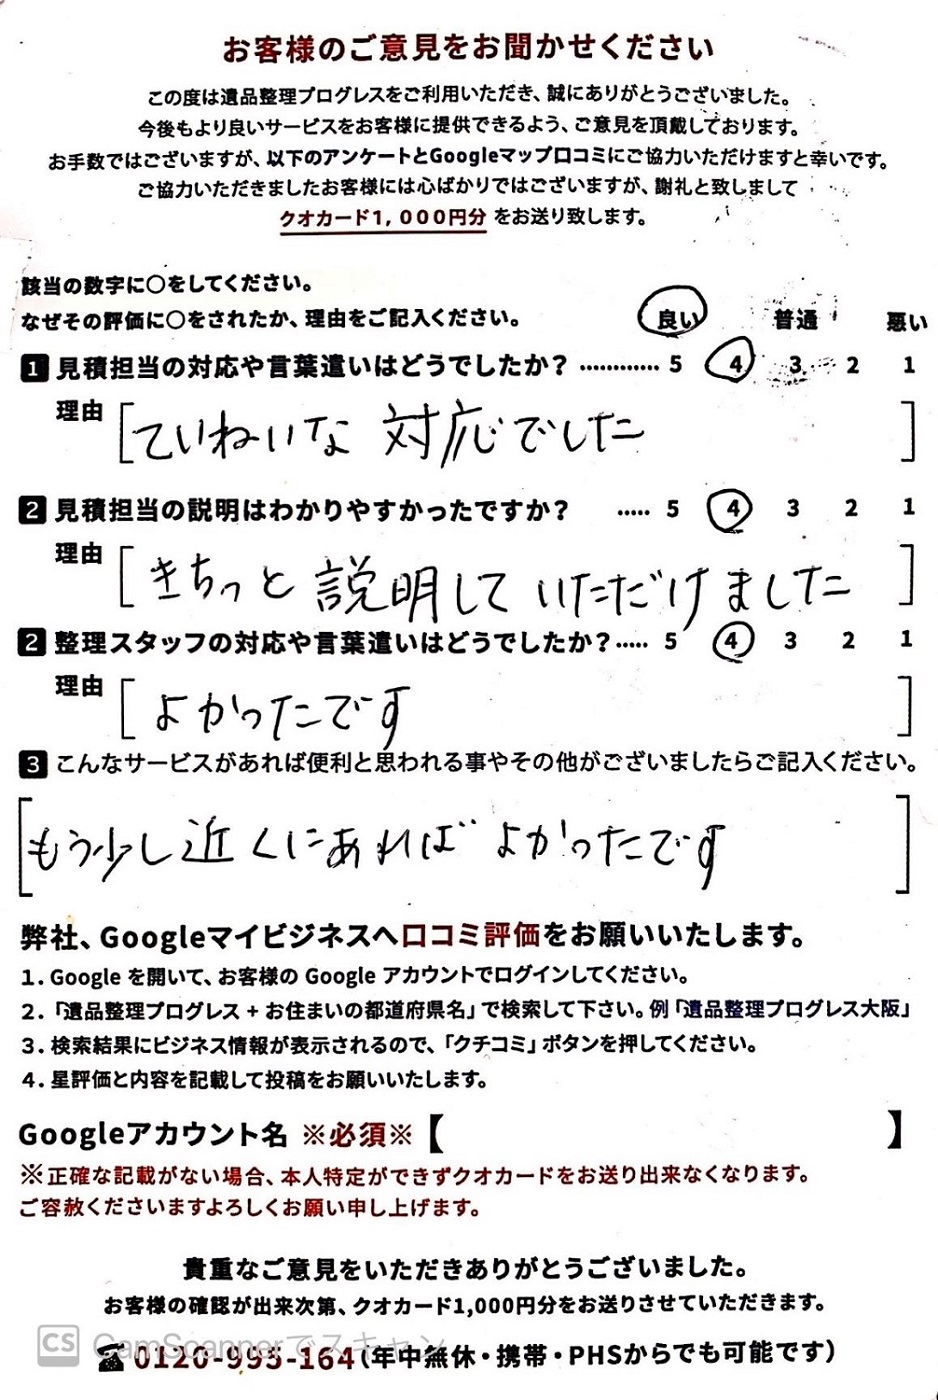 お客様のご意見をお聞かせください
この度は遺品整理プログレスをご利用いただき、誠にありがとうございました。
今後もより良いサービスをお客様に提供できるよう、ご意見を頂戴しております。
お手数ではございますが、以下のアンケートとGoogleマップ口コミにご協力いただけますと幸いです。
ご協力いただきましたお客様には心ばかりではございますが、謝礼と致しまして
クオカード1,000円分 をお送り致します。
該当の数字に〇をしてください。
なぜその評価に〇をされたか、理由をご記入ください。 良い 普通 悪い
1 見積担当の対応や言葉遣いはどうでしたか？ ………… 5 4 3 2 1
理由 [ていねいな 対応でした]
2 見積担当の説明はわかりやすかったですか？ ‥‥‥ 5 4 3 2 1
理由 [きちっと 説明して いただけました]
2 整理スタッフの対応や言葉遣いはどうでしたか？‥‥‥ 5 4 3 2 1
理由 [よかったです]
3 こんなサービスがあれば便利と思われる事やその他がございましたらご記入ください。
[もう少し近くにあれば よかったです]
弊社、Googleマイビジネスへ口コミ評価をお願いいたします。
1. Google を開いて、お客様の Google アカウントでログインしてください。
2.「遺品整理プログレス + お住まいの都道府県名」で検索して下さい。例「遺品整理プログレス大阪」
3. 検索結果にビジネス情報が表示されるので、「クチコミ」ボタンを押してください。
4. 星評価と内容を記載して投稿をお願いいたします。
Googleアカウント名 ※必須※【 】
※正確な記載がない場合、本人特定ができずクオカードをお送り出来なくなります。
ご容赦くださいますよろしくお願い申し上げます。
貴重なご意見をいただきありがとうございました。
お客様の確認が出来次第、クオカード1,000円分をお送りさせていただきます。
CS CamScannerでスキャン
☎0120-993-164(年中無休・携帯・PHSからでも可能です)